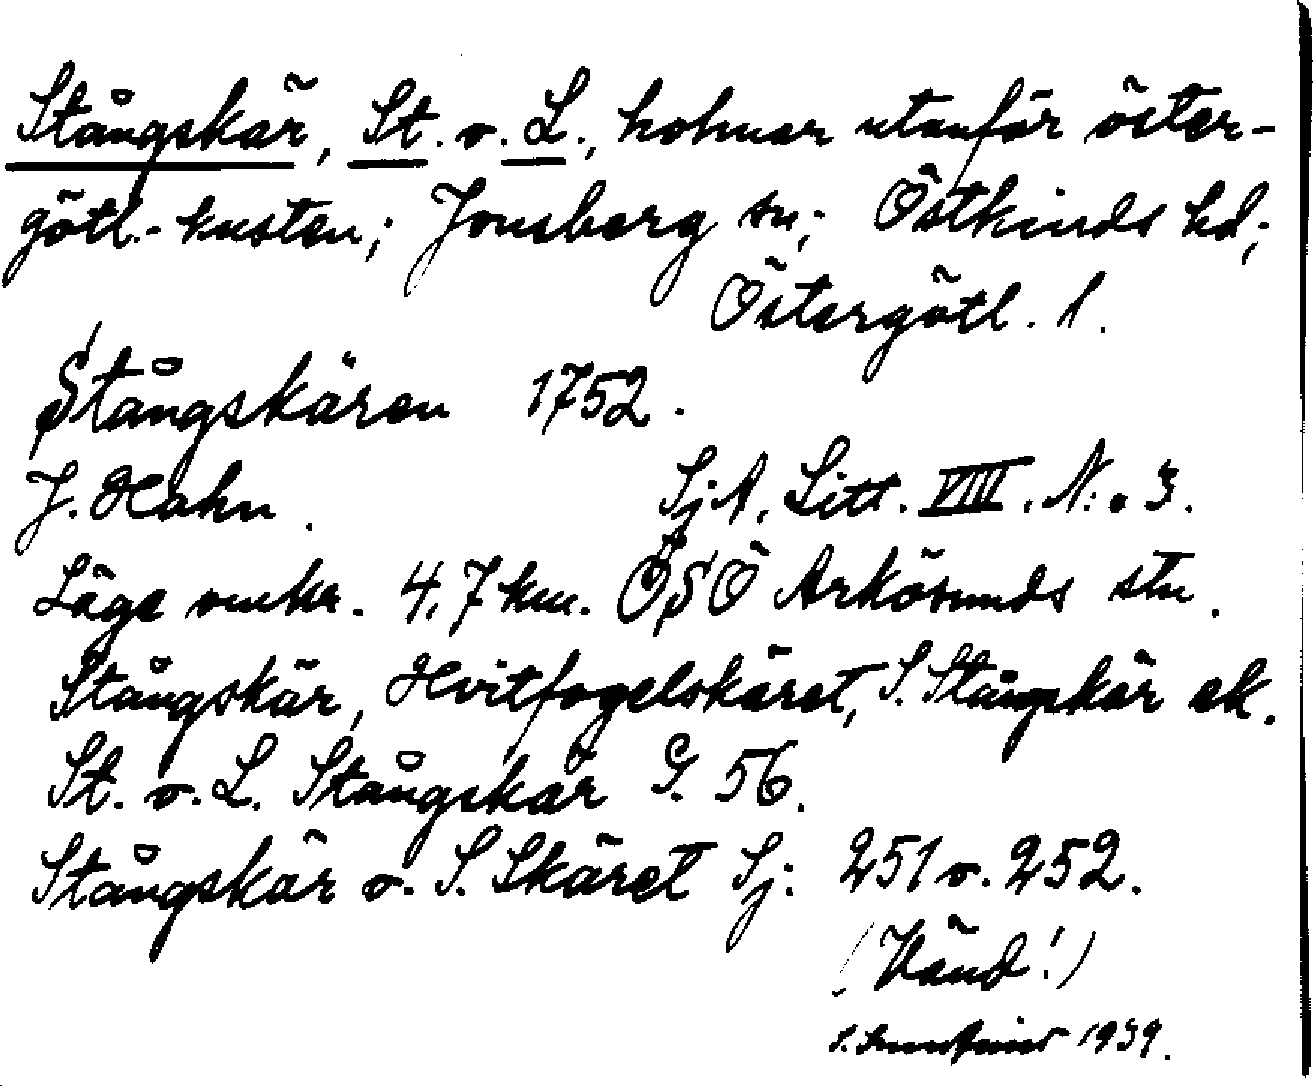 Stångskär, St. o. L., holmar utanför öster-
götl.-kusten; Jonsberg sn; Östkinds hd;
Östergötl. l.
Stångskären 1752.
J. Hahn. SjA. Litt. VIII. N:o 3.
Läge omkr. 4,7 km. ÖSÖ Arkösunds stn.
Stångskär, Hvitfogelskäret, S. Stångskär ek.
St. o. L. Stångskär G. 56.
Stångskär o. S. Skäret Sj. 251 o. 252.
(Vänd!)
1939.